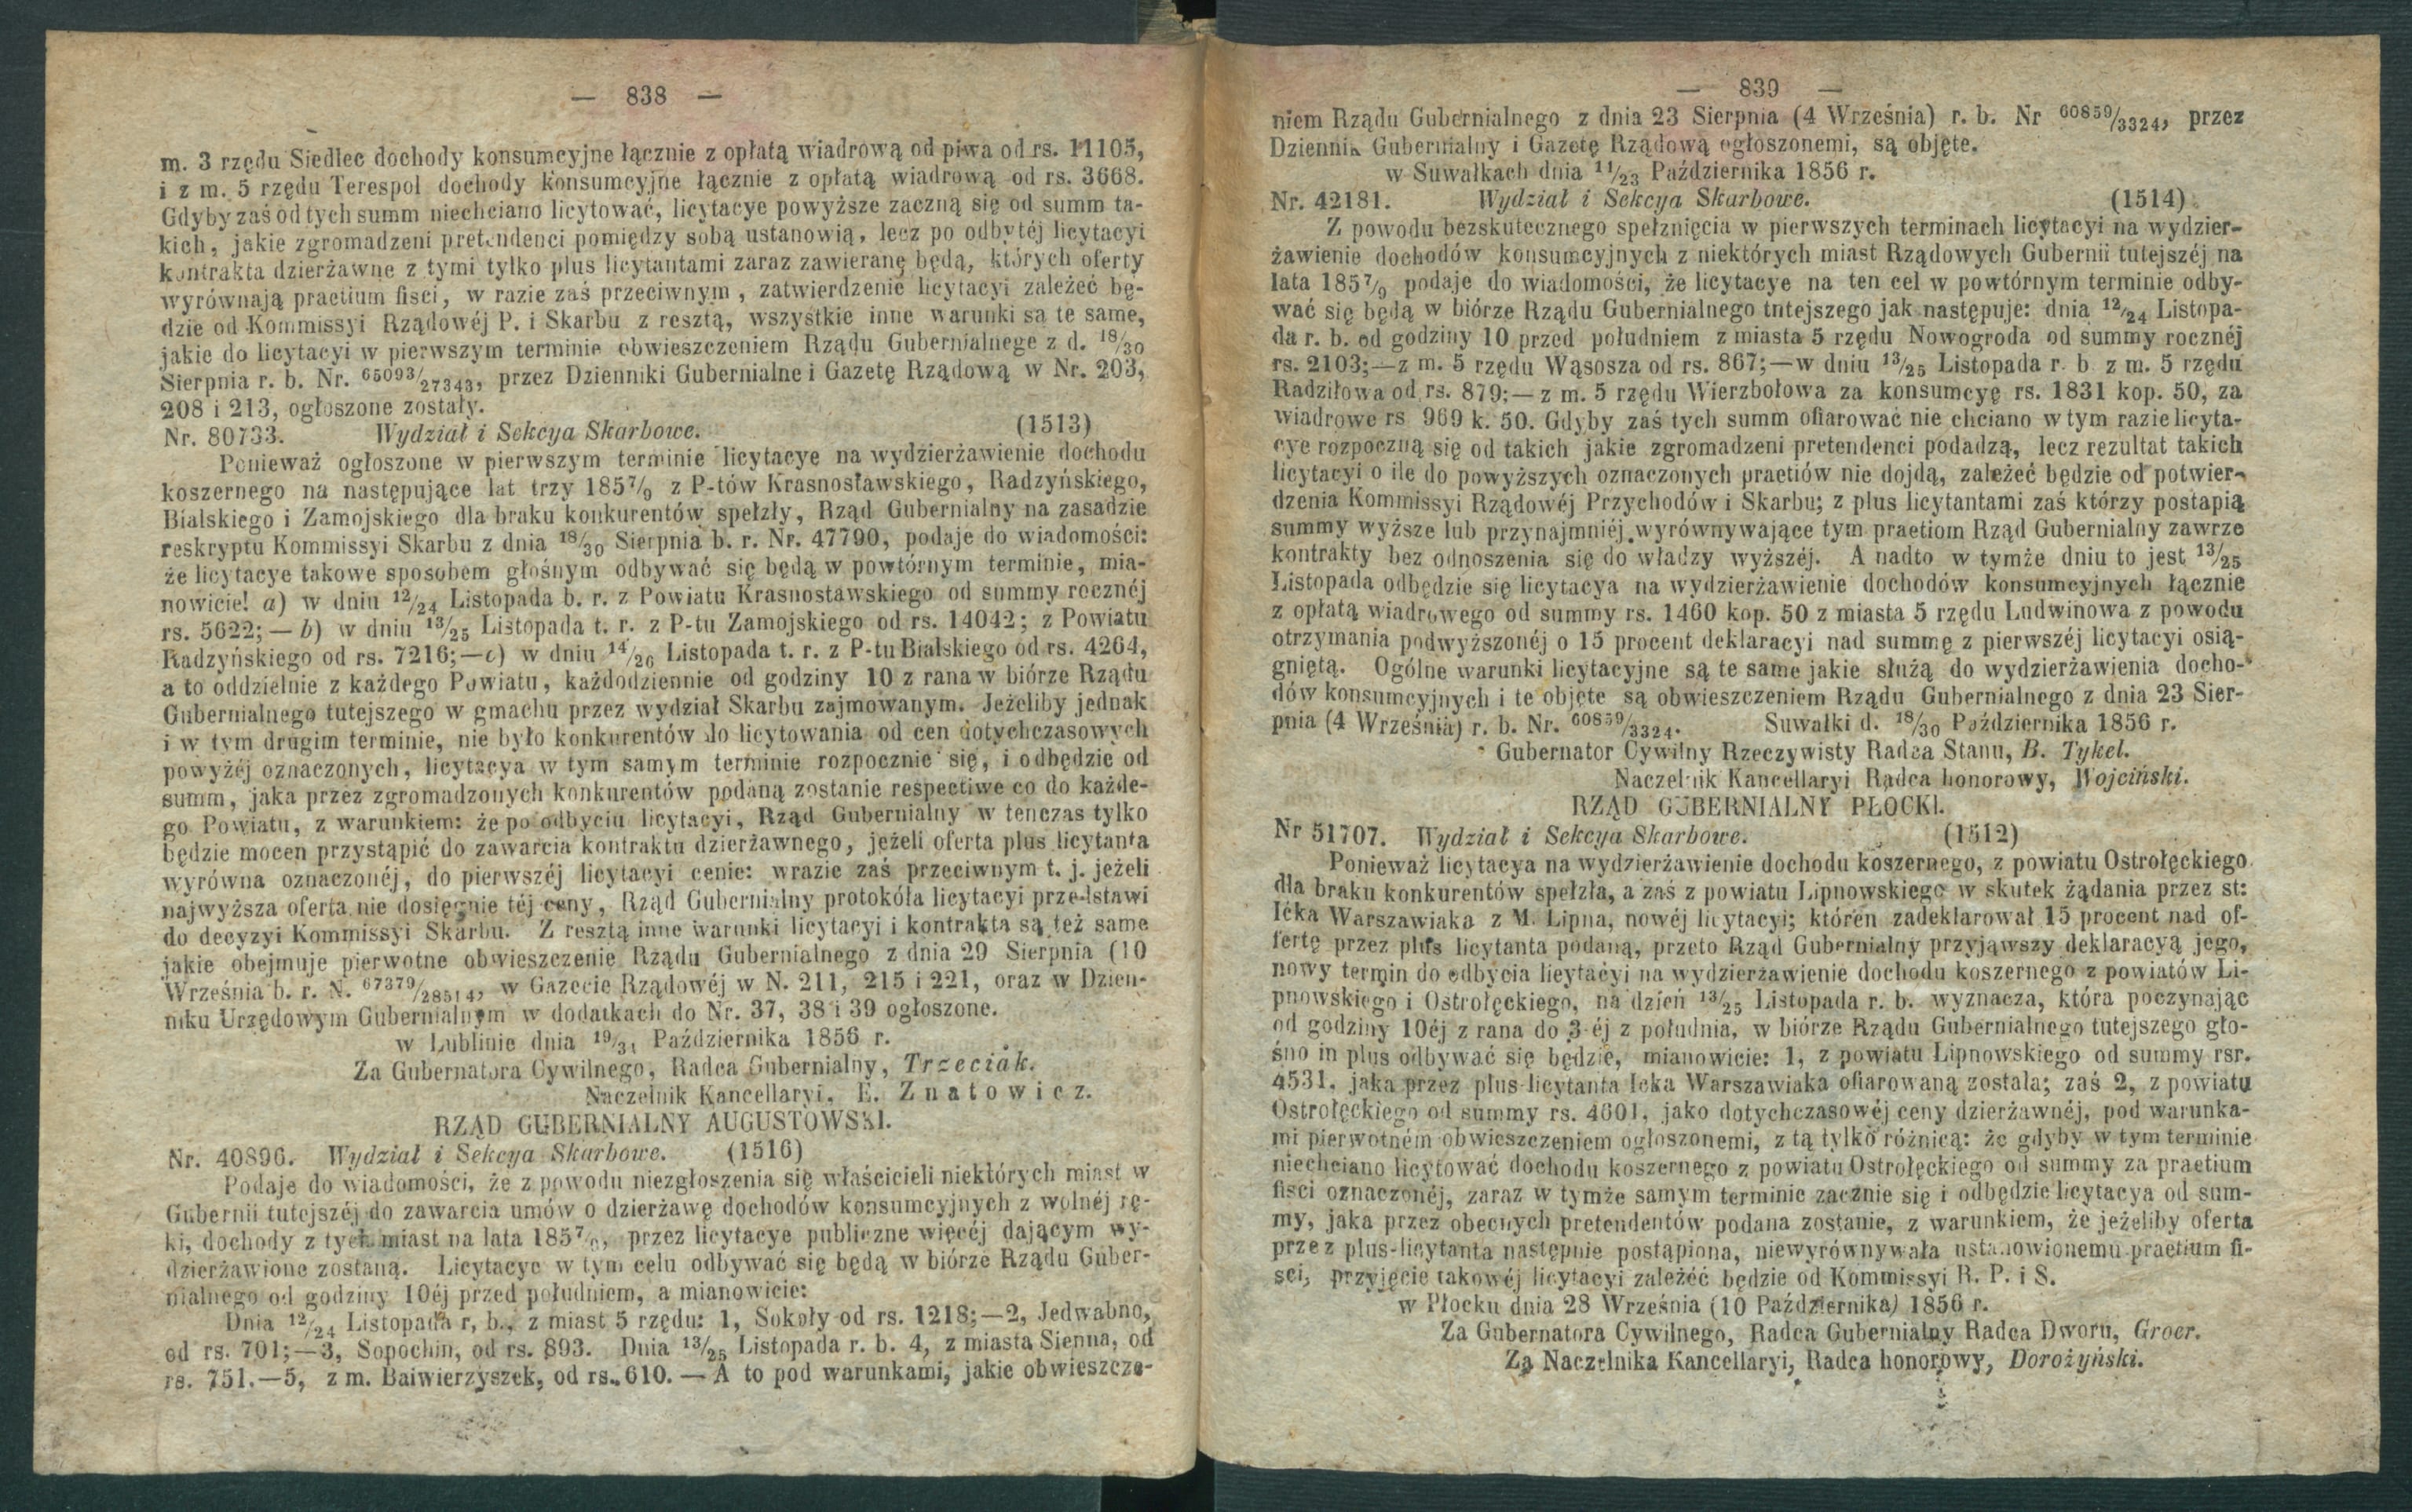 — 838 —
m. 3 rzędu Siedlec dochody konsumcyjne łącznie z opłatą wiadrową od piwa od rs. 11105,
i z m. 5 rzędu Terespol dochody konsumcyjne łącznie z opłatą wiadrową od rs. 3668.
Gdyby zaś od tych summ niechciano licytować, licytacye powyższe zaczną się od summ ta-
kich, jakie zgromadzeni pretendenci pomiędzy sobą ustanowią, lecz po odbytéj licytacyi
kontrakta dzierżawne z tymi tylko plus licytantami zaraz zawieranę będą, których oferty
wyrównają praetium fisci, w razie zaś przeciwnym, zatwierdzenie licytacyi zależeć bę-
dzie od Kommissyi Rządowéj P. i Skarbu z resztą, wszystkie inne warunki są te same,
jakie do licytacyi w pierwszym terminie obwieszczeniem Rządu Gubernialnege z d. 18/30
Sierpnia r. b. Nr. 65093/27343, przez Dzienniki Gubernialne i Gazetę Rządową w Nr. 203,
208 i 213, ogłoszone zostały.
Nr. 80733. Wydział i Sekcya Skarbowe. (1513)
Ponieważ ogłoszone w pierwszym terminie licytacye na wydzierżawienie dochodu
koszernego na następujące lat trzy 1857/9 z P-tów Krasnostawskiego, Radzyńskiego,
Bialskiego i Zamojskiego dla braku konkurentów spełzły, Rząd Gubernialny na zasadzie
reskryptu Kommissyi Skarbu z dnia 18/30 Sierpnia b. r. Nr. 47790, podaje do wiadomości:
że licytacye takowe sposobem głośnym odbywać się będą w powtórnym terminie, mia-
nowicie! a) w dniu 12/24 Listopada b. r. z Powiatu Krasnostawskiego od summy rocznéj
rs. 5622; — b) w dniu 13/25 Listopada t. r. z P-tu Zamojskiego od rs. 14042; z Powiatu
Radzyńskiego od rs. 7216; — c) w dniu 14/26 Listopada t. r. z P-tu Bialskiego od rs. 4264,
a to oddzielnie z każdego Powiatu, każdodziennie od godziny 10 z rana w biórze Rządu
Gubernialnego tutejszego w gmachu przez wydział Skarbu zajmowanym. Jeżeliby jednak
i w tym drugim terminie, nie było konkurentów do licytowania od cen dotychczasowych
powyżéj oznaczonych, licytacya w tym samym terminie rozpocznie się, i odbędzie od
summ, jaka przez zgromadzonych konkurentów podaną zostanie respective co do każde-
go Powiatu, z warunkiem: że po odbyciu licytacyi, Rząd Gubernialny w tenczas tylko
będzie mocen przystąpić do zawarcia kontraktu dzierżawnego, jeżeli oferta plus licytanta
wyrówna oznaczonéj, do pierwszéj licytacyi cenie: wrazie zaś przeciwnym t. j. jeżeli
najwyższa oferta nie dosięgnie téj ceny, Rząd Gubernialny protokóła licytacyi przedstawi
do decyzyi Kommissyi Skarbu. Z resztą inne warunki licytacyi i kontrakta są też same
jakie obejmuje pierwotne obwieszczenie Rządu Gubernialnego z dnia 29 Sierpnia (10
Września b. r. N. 67379/28514, w Gazecie Rządowéj w N. 211, 215 i 221, oraz w Dzien-
niku Urzędowym Gubernialnym w dodatkach do Nr. 37, 38 i 39 ogłoszone.
w Lublinie dnia 19/31 Października 1856 r.
Za Gubernatora Cywilnego, Radca Gubernialny, Trzeciak.
Naczelnik Kancellaryi, E. Znatowicz.
RZĄD GUBERNIALNY AUGUSTOWSKI.
Nr. 40896. Wydział i Sekcya Skarbowe. (1516)
Podaje do wiadomości, że z powodu niezgłoszenia się właścicieli niektórych miast w
Gubernii tutejszéj do zawarcia umów o dzierżawę dochodów konsumcyjnych z wolnéj rę-
ki, dochody z tych miast na lata 1857/9, przez licytacye publiczne więcéj dającym wy-
dzierżawione zostaną. Licytacye w tym celu odbywać się będą w biórze Rządu Guber-
nialnego od godziny 10éj przed południem, a mianowicie:
Dnia 12/24 Listopada r, b., z miast 5 rzędu: 1, Sokoły od rs. 1218; — 2, Jedwabno,
od rs. 701; — 3, Sopochin, od rs. 893. Dnia 13/25 Listopada r. b. 4, z miasta Sienna, od
rs. 751. — 5, z m. Baiwierzyszek, od rs. 610. — A to pod warunkami, jakie obwieszcze-
— 839 —
niem Rządu Gubernialnego z dnia 23 Sierpnia (4 Września) r. b. Nr 60859/3324, przez
Dziennik Gubernialny i Gazetę Rządową ogłoszonemi, są objęte.
w Suwałkach dnia 11/23 Października 1856 r.
Nr. 42181. Wydział i Sekcya Skarbowe. (1514)
Z powodu bezskutecznego spełznięcia w pierwszych terminach licytacyi na wydzier-
żawienie dochodów konsumcyjnych z niektórych miast Rządowych Gubernii tutejszéj na
lata 1857/9 podaje do wiadomości, że licytacye na ten cel w powtórnym terminie odby-
wać się będą w biórze Rządu Gubernialnego tutejszego jak następuje: dnia 12/24 Listopa-
da r. b. od godziny 10 przed południem z miasta 5 rzędu Nowogroda od summy rocznéj
rs. 2103; — z m. 5 rzędu Wąsosza od rs. 867; — w dniu 13/25 Listopada r. b z m. 5 rzędu
Radziłowa od rs. 879; — z m. 5 rzędu Wierzbołowa za konsumcyę rs. 1831 kop. 50, za
wiadrowe rs 969 k. 50. Gdyby zaś tych summ ofiarować nie chciano w tym razie licyta-
cye rozpoczną się od takich jakie zgromadzeni pretendenci podadzą, lecz rezultat takich
licytacyi o ile do powyższych oznaczonych praetiów nie dojdą, zależeć będzie od potwier-
dzenia Kommissyi Rządowéj Przychodów i Skarbu; z plus licytantami zaś którzy postapią
summy wyższe lub przynajmniéj wyrównywające tym praetiom Rząd Gubernialny zawrze
kontrakty bez odnoszenia się do władzy wyższéj. A nadto w tymże dniu to jest 13/25
Listopada odbędzie się licytacya na wydzierżawienie dochodów konsumcyjnych łącznie
z opłatą wiadrowego od summy rs. 1460 kop. 50 z miasta 5 rzędu Ludwinowa z powodu
otrzymania podwyższonéj o 15 procent deklaracyi nad summę z pierwszéj licytacyi osią-
gniętą. Ogólne warunki licytacyjne są te same jakie służą do wydzierżawienia docho-
dów konsumcyjnych i te objęte są obwieszczeniem Rządu Gubernialnego z dnia 23 Sier-
pnia (4 Września) r. b. Nr. 60859/3324. Suwałki d. 18/30 Października 1856 r.
Gubernator Cywilny Rzeczywisty Radca Stanu, B. Tykel.
Naczelnik Kancellaryi Radca honorowy, Wojciński.
RZĄD GUBERNIALNY PŁOCKI.
Nr 51707. Wydział i Sekcya Skarbowe. (1512)
Ponieważ licytacya na wydzierżawienie dochodu koszernego, z powiatu Ostrołęckiego
dla braku konkurentów spełzła, a zaś z powiatu Lipnowskiego w skutek żądania przez st:
Icka Warszawiaka z M. Lipna, nowéj licytacyi; któren zadeklarował 15 procent nad of-
fertę przez plus licytanta podaną, przeto Rząd Gubernialny przyjąwszy deklaracyą jego,
nowy termin do odbycia licytacyi na wydzierżawienie dochodu koszernego z powiatów Li-
pnowskiego i Ostrołęckiego, na dzień 13/25 Listopada r. b. wyznacza, która poczynając
od godziny 10éj z rana do 3-éj z południa, w biórze Rządu Gubernialnego tutejszego gło-
śno in plus odbywać się będzie, mianowicie: 1, z powiatu Lipnowskiego od summy rsr.
4531, jaka przez plus-licytanta Icka Warszawiaka ofiarowaną została; zaś 2, z powiatu
Ostrołęckiego od summy rs. 4601, jako dotychczasowéj ceny dzierżawnéj, pod warunka-
mi pierwotném obwieszczeniem ogłoszonemi, z tą tylko różnicą: że gdyby w tym terminie
niechciano licytować dochodu koszernego z powiatu Ostrołęckiego od summy za praetium
fisci oznaczonéj, zaraz w tymże samym terminie zacznie się i odbędzie licytacya od sum-
my, jaka przez obecnych pretendentów podana zostanie, z warunkiem, że jeżeliby oferta
przez plus-licytanta następnie postąpiona, niewyrównywała ustanowionemu praetium fi-
sci, przyjęcie takowéj licytacyi zależéć będzie od Kommissyi R. P. i S.
w Płocku dnia 28 Września (10 Października) 1856 r.
Za Gubernatora Cywilnego, Radca Gubernialny Radca Dworu, Groer.
Za Naczelnika Kancellaryi, Radca honorowy, Dorożyński.